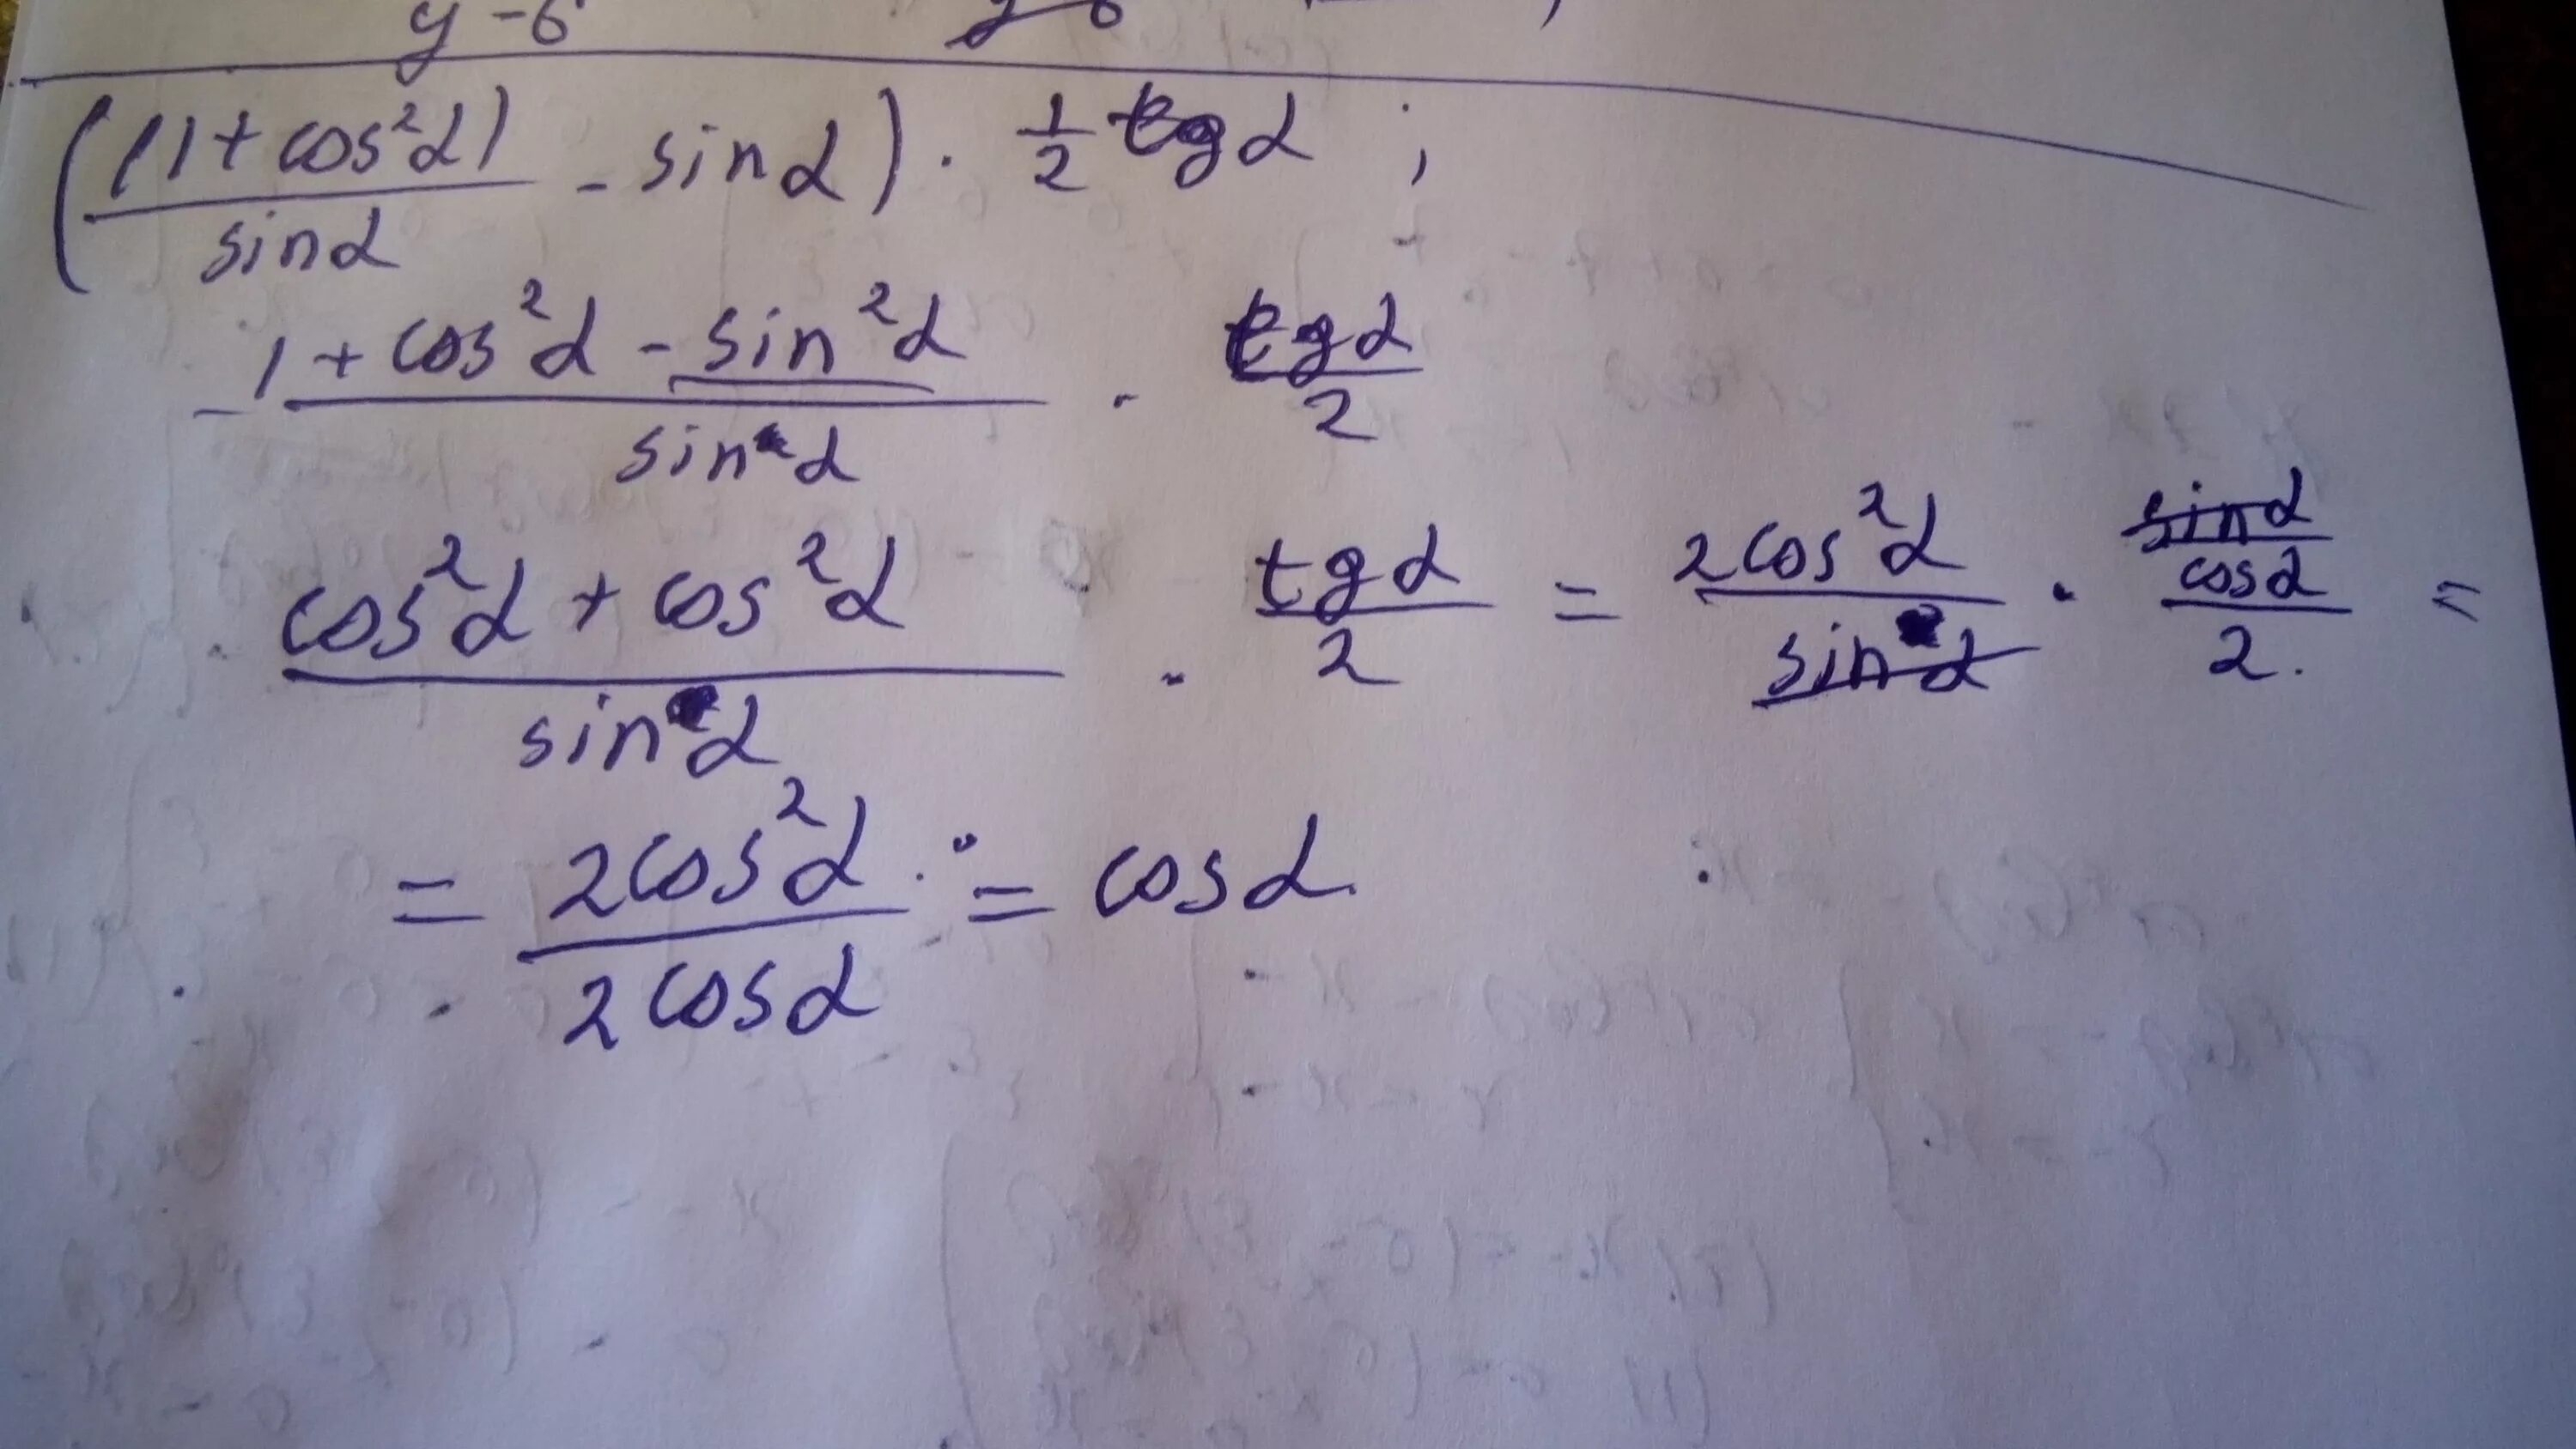 y-6
((1+cos²α)/sinα - sinα) · 1/2 tgα ;
(1+cos²α - sin²α)/sinα · tgα/2
(cos²α + cos²α)/sinα · tgα/2 = 2cos²α/sinα · (sinα/cosα)/2. =
= 2cos²α/2cosα = cosα.